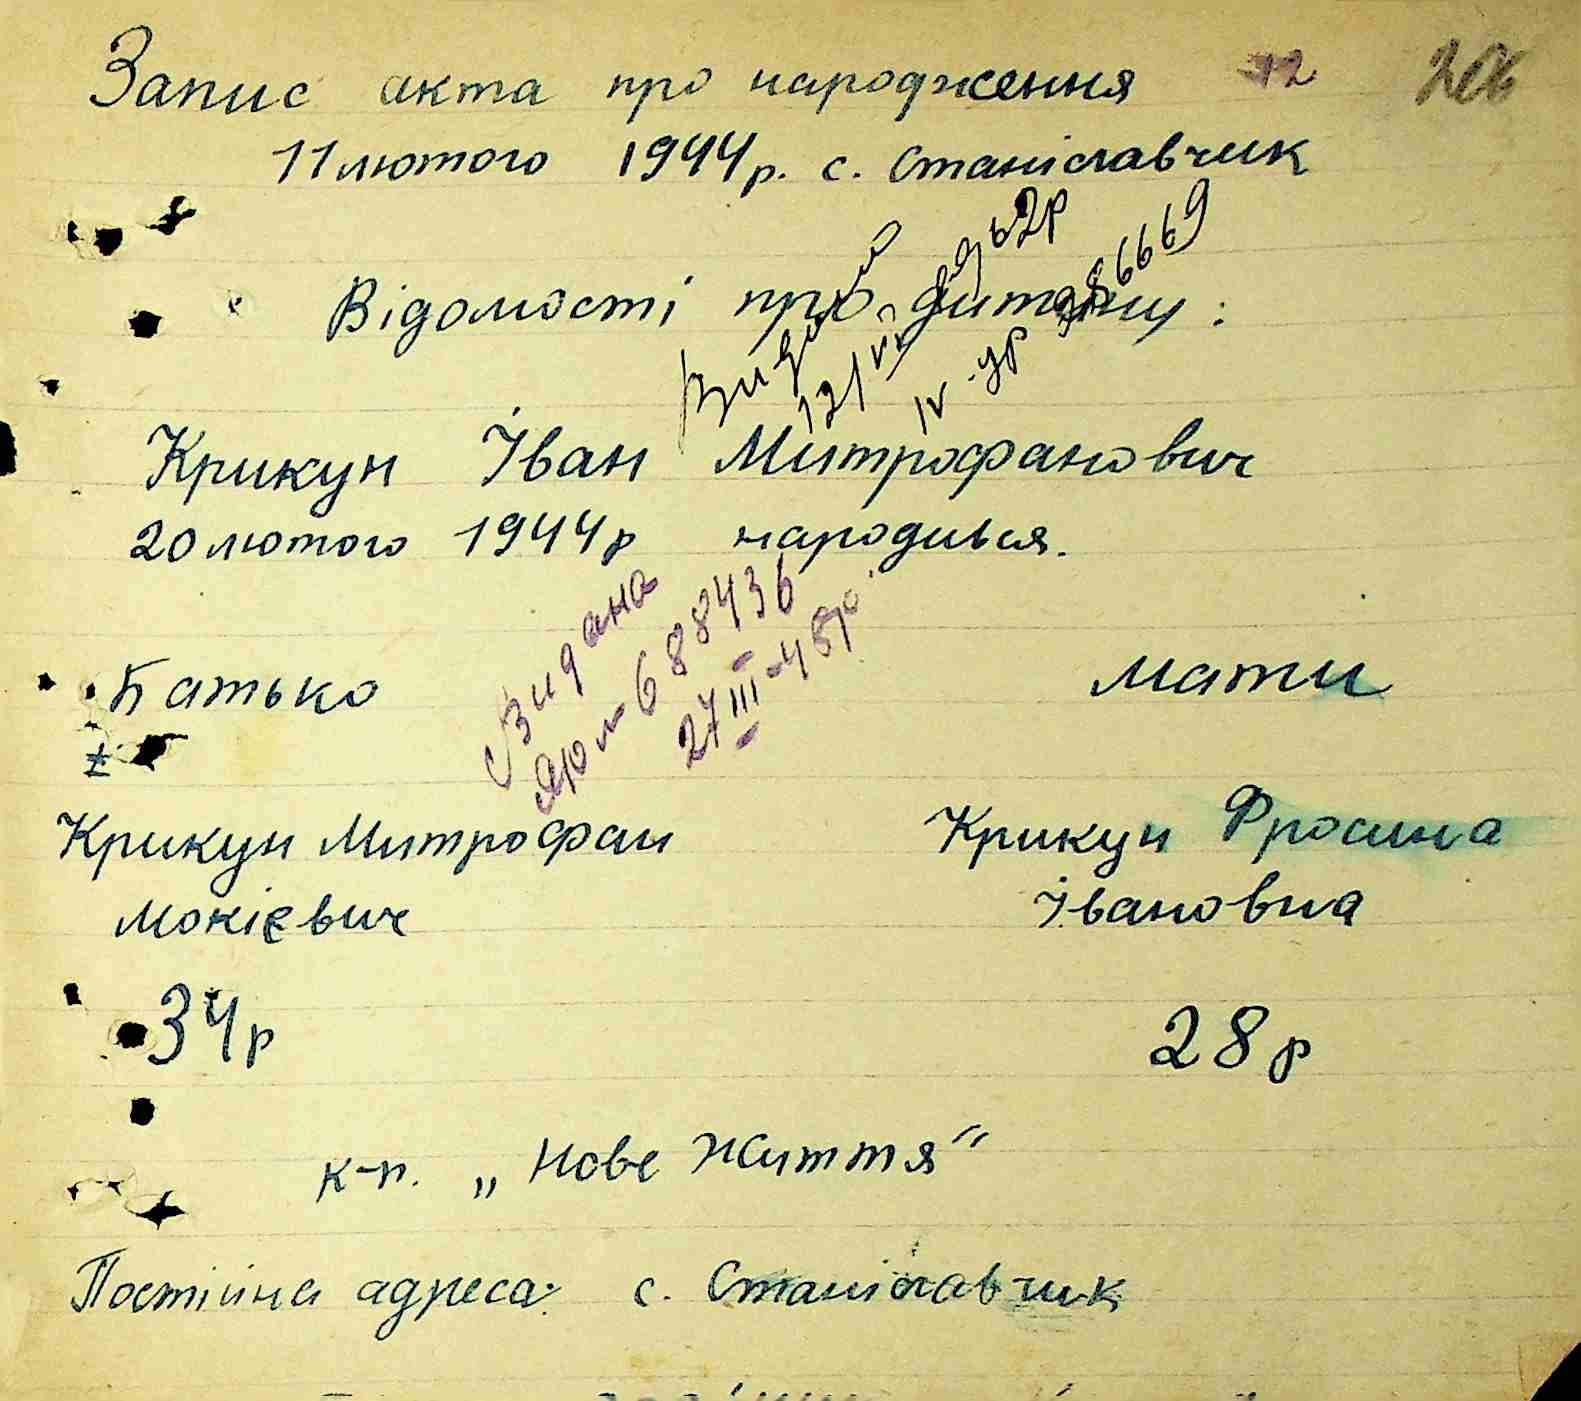 Запис акта про народження 12 206
11 лютого 1944 р. с. Станіславчик
Відомості про дитину:
12/VII 62р
IV-УР 386669
Крикун Іван Митрофанович
20 лютого 1944 р народився.
Видана
688436
27 III-45р.
Батько мати
Крикун Митрофан Крикун Фросина
Мокієвич Івановна
34 р 28 р
к-п. „Нове життя“
Постійна адреса: с. Станіславчик